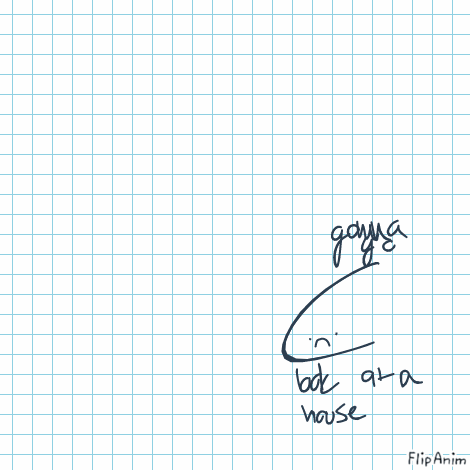 gonna
look at a
house
FlipAnim